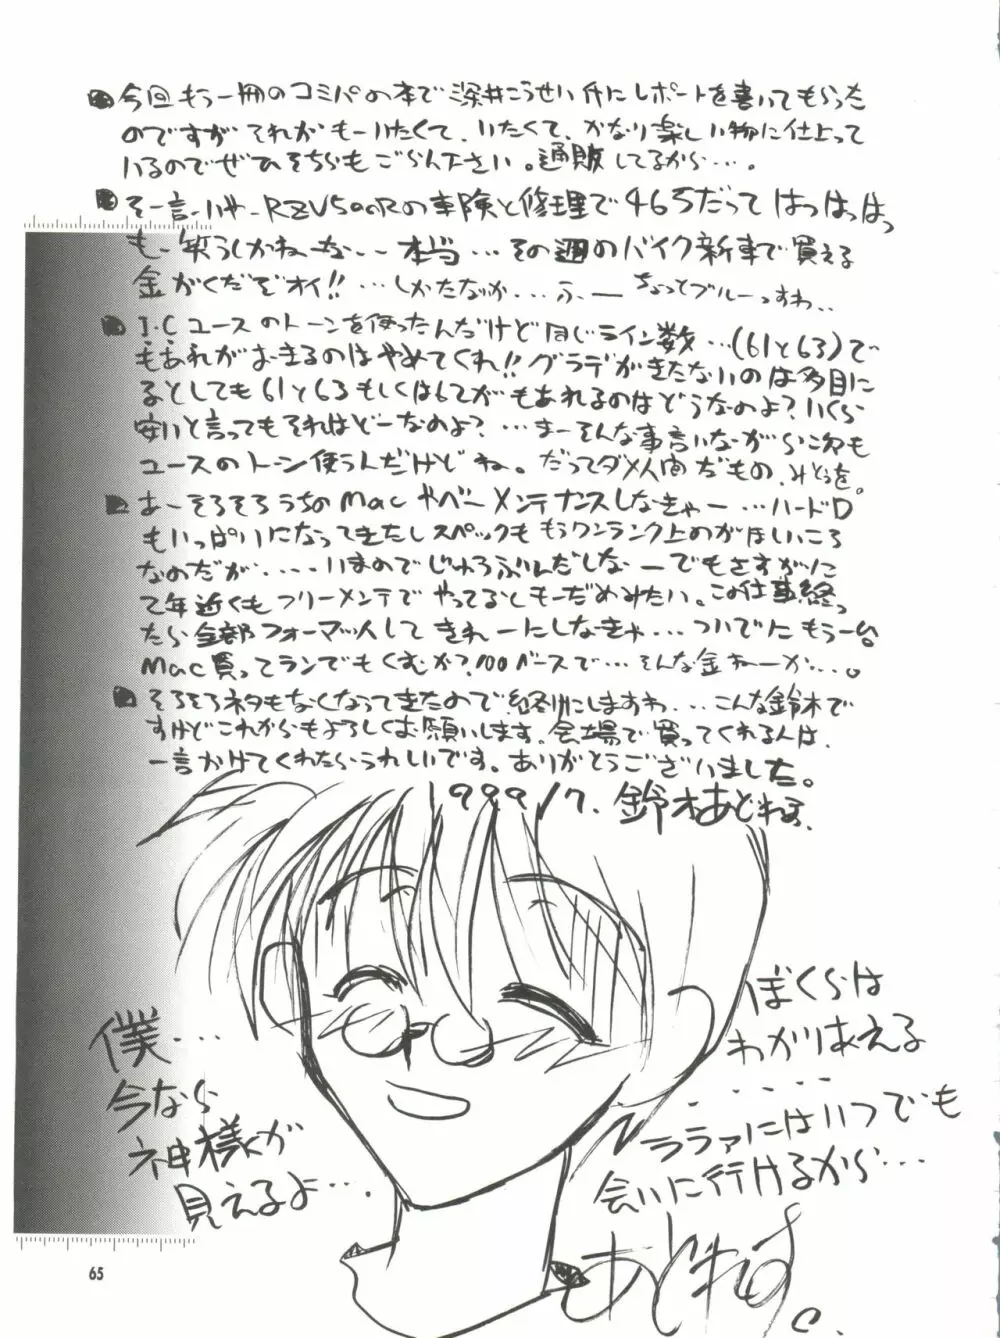 今回もう一冊のコミパの本で深井こうせい氏にレポートを書いてもらった
のですが それがもーいたくて、いたくて、かなり楽しい物に仕上って
いるのでぜひそちらもごらん下さい。通販してるから…。
そー言-いや-RZV500Rの車険と修理で465だって はっはっはっ
もー笑うしかねーな…本当…その週のバイク新車で買える
金がくだぞオイ!!…しかたなか…ふー ちょっとブルーっすわ…
I・Cユースのトーンを使ったんだけど同じライン数…(61と63)で
もあれがおきるのはやめてくれ!!グラデがきたないのは多目に
るとしても61と63もしくは62がもあれるのはどうなのよ?いくら
安いと言ってもそれはどーなのよ?…まーそんな事言いながら次も
ユースのトーン使うんだけどね。だってダメ人間だもの、みとぅを。
あーそろそろうちのMacやべーメンテナンスしなきゃー…ハードD
もいっぱいになってきたしスペックももうワンランク上のがほしいころ
なのだが、…いまのでじゅうぶんだしなーでもさすがに
2年近くもフリーメンテでやってるともーだめみたい。この仕事終っ
たら全部フォーマット人してきれーにしなきゃ…ついでにもう一台
Mac買ってランでもくむか?100ベースで…そんな金ねーか…。
そろそろネタもなくなってきたので終りにしますわ…こんな鈴木で
すけどこれからもよろしくお願いします。会場で買ってくれる人は、
一言かけてくれたらうれしいです。ありがとうございました。
1999/7. 鈴木あどねす.
僕…
今なら
神様が
見えるよ…
ぼくらは
わかりあえる
....
ララァにはいつでも
会いに行けるから…
あどねす。
65